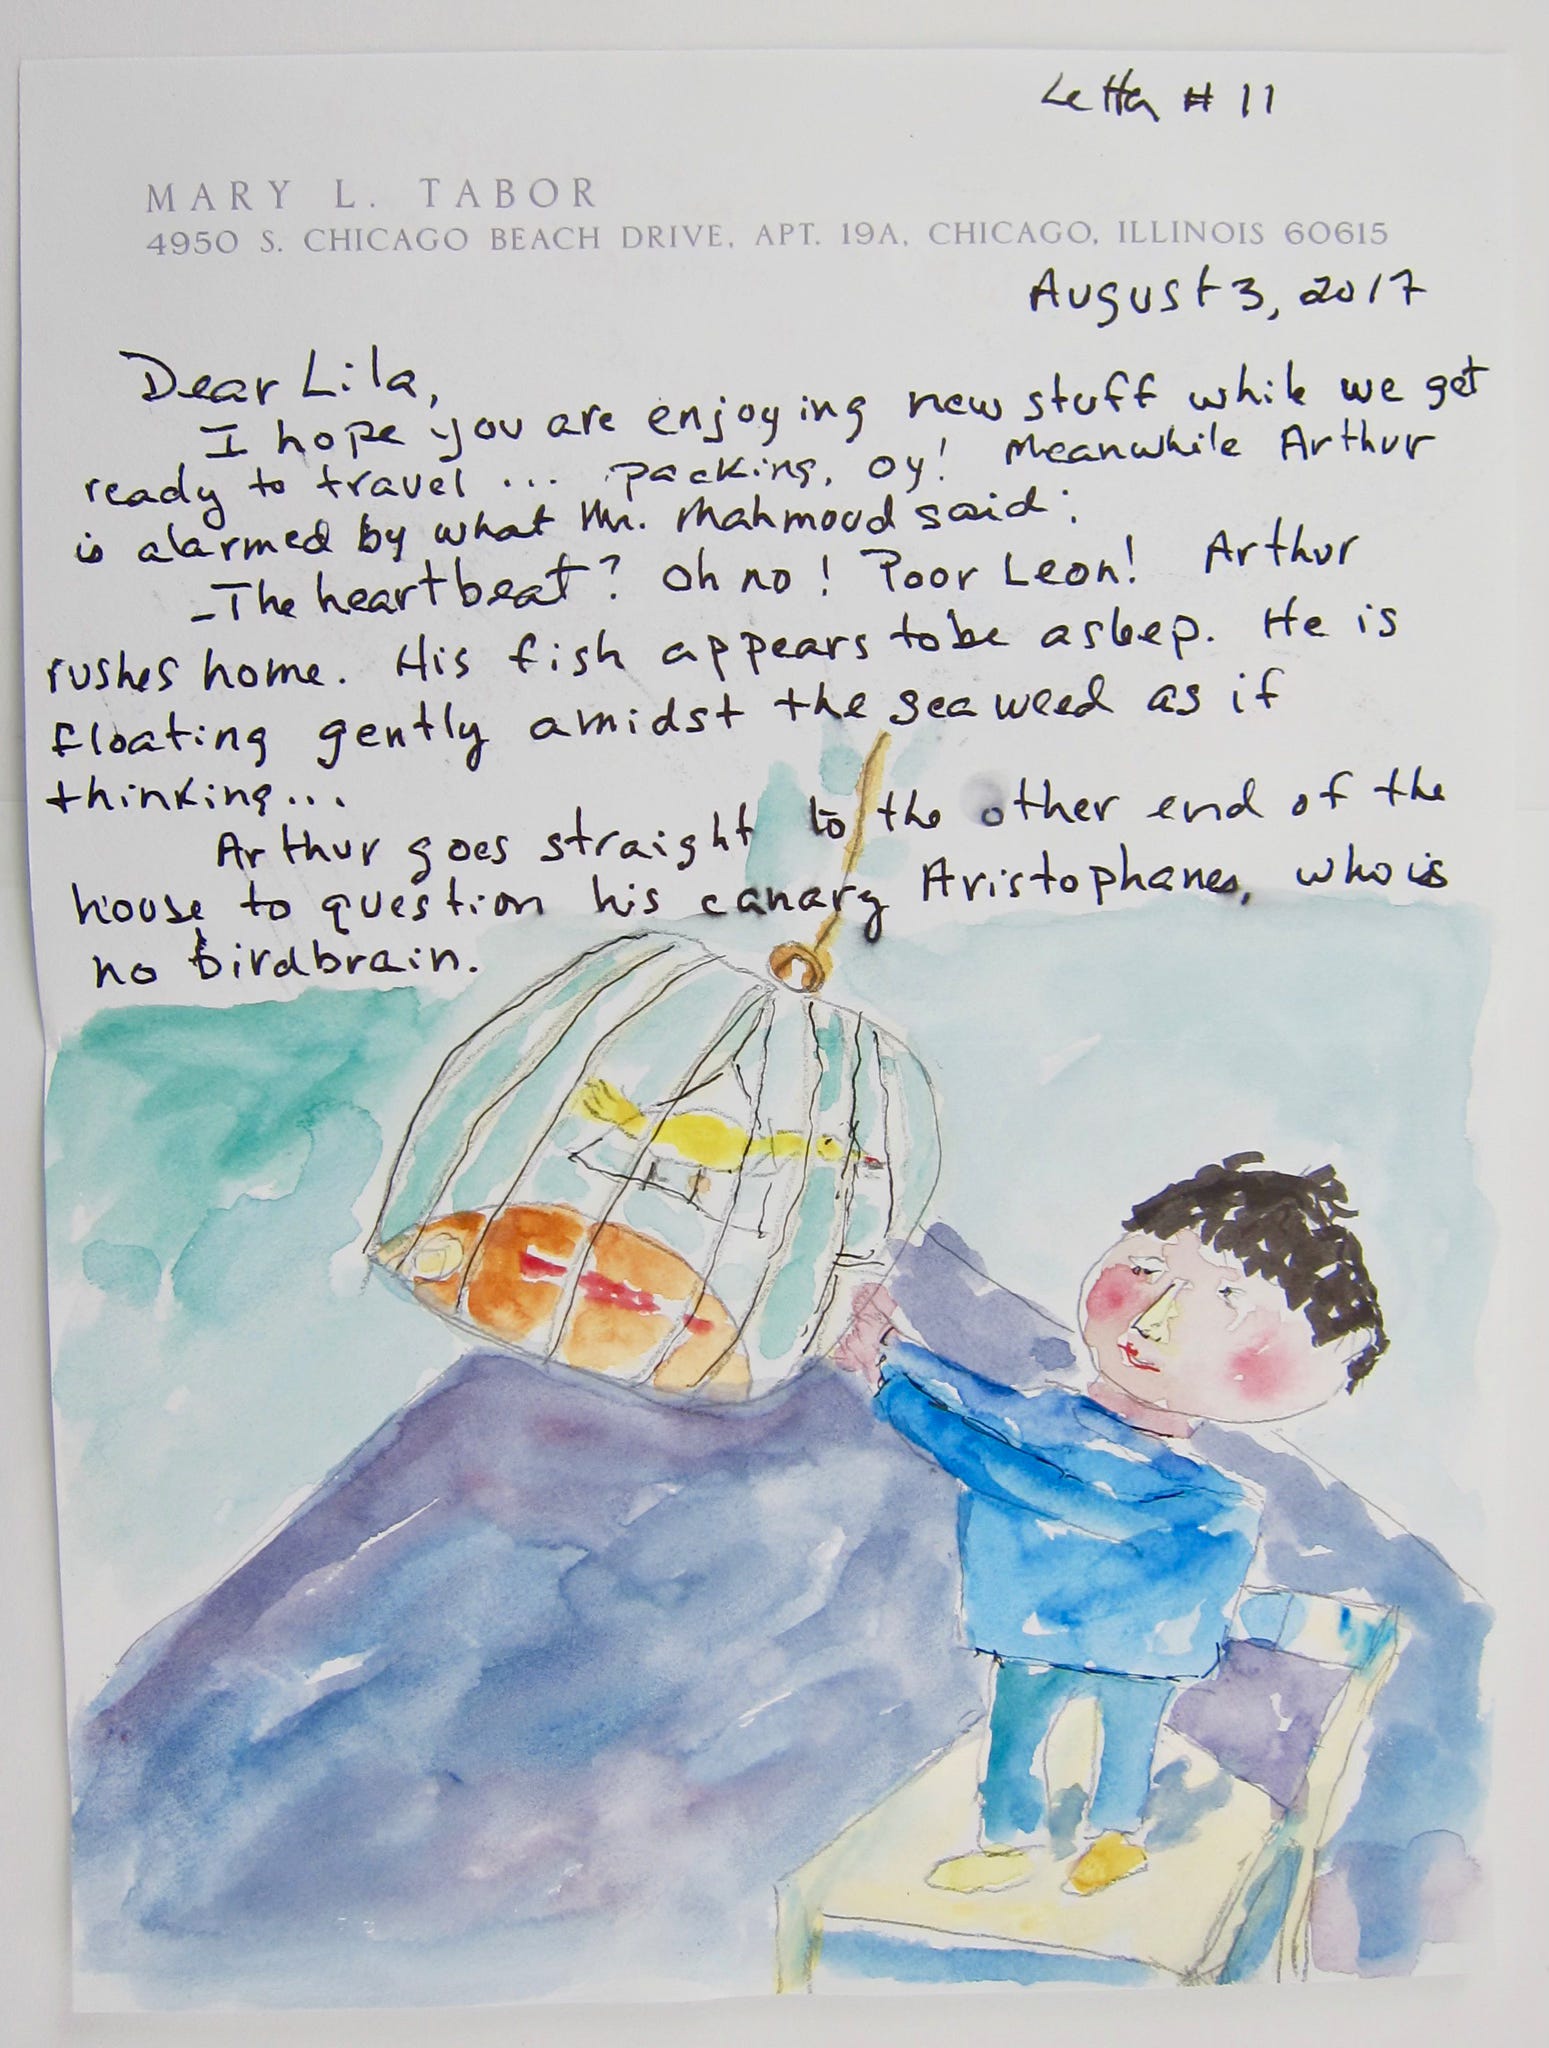 Letter # 11
MARY L. TABOR
4950 S. CHICAGO BEACH DRIVE, APT. 19A, CHICAGO, ILLINOIS 60615
August 3, 2017
Dear Lila,
I hope you are enjoying new stuff while we get
ready to travel ... packing, oy! Meanwhile Arthur
is alarmed by what Mr. Mahmoud said:
-The heartbeat? Oh no! Poor Leon! Arthur
rushes home. His fish appears to be asleep. He is
floating gently amidst the seaweed as if
thinking...
Arthur goes straight to the other end of the
house to question his canary Aristophanes, who is
no birdbrain.